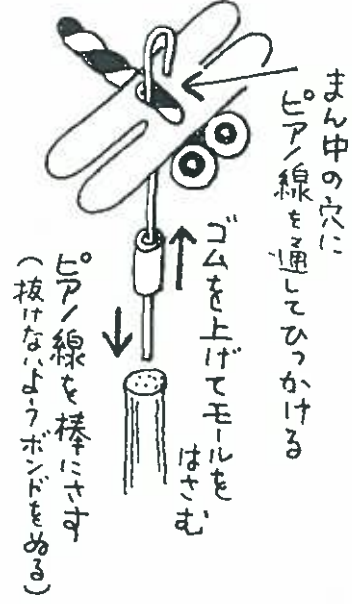 まん中の穴に
ピアノ線を通してひっかける
ゴムを上げてモールを
はさむ
ピアノ線を棒にさす
(抜けないようボンドをぬる)